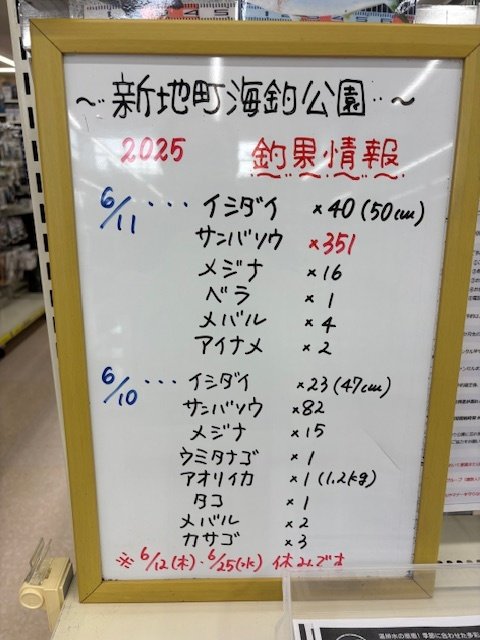 ～新地町海釣公園～
2025 釣果情報
6/11 ・・・ イシダイ ×40(50cm)
サンバソウ ×351
メジナ ×16
ベラ ×1
メバル ×4
アイナメ ×2
6/10 ・・・ イシダイ ×23(47cm)
サンバソウ ×82
メジナ ×15
ウミタナゴ ×1
アオリイカ ×1(1.2kg)
タコ ×1
メバル ×2
カサゴ ×3
※6/12(木)・6/25(水)休みです